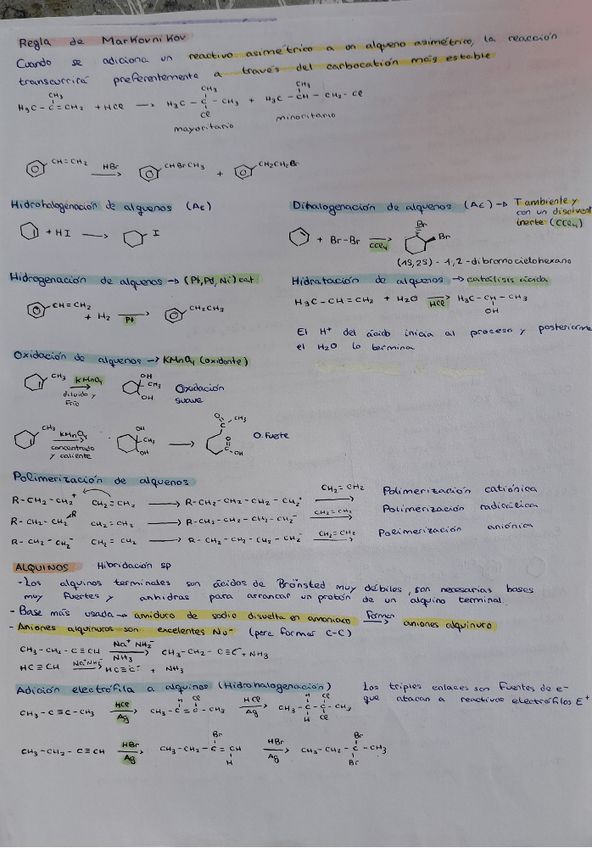 Regla de Markovnikov
Cuando se adiciona un reactivo asimétrico a un alqueno asimétrico, la reacción
transcurrirá preferentemente a través del carbocatión más estable
CH₃ CH₃ CH₃
H₃C-C=CH₂ + HCl → H₃C-C-CH₃ + H₃C-CH-CH₂-Cl
Cl
mayoritario minoritario
CH=CH₂ HBr → CHBrCH₃ + CH₂CH₂Br
Hidrohalogenación de alquenos (Ac)
+ HI → I
Dihalogenación de alquenos (Ac) → T ambiente y
con un disolvente
inerte (CCl₄)
+ Br-Br CCl₄ → Br Br
(1S,2S)-1,2-dibromociclohexano
Hidrogenación de alquenos → (Pt,Pd,Ni) cat.
CH=CH₂ + H₂ Pt → CH₂CH₃
Hidratación de alquenos → catálisis ácida
H₃C-CH=CH₂ + H₂O HCl → H₃C-CH-CH₃
OH
El H⁺ del ácido inicia al proceso y
el H₂O lo termina
Oxidación de alquenos → KMnO₄ (oxidante)
CH₃ KMnO₄ → OH CH₃ OH Oxidación
diluido y
frío suave
CH₃ KMnO₄ → OH CH₃ OH → O CH₃ O OH O. Fuerte
concentrato
y caliente
Polimerización de alquenos
R-CH₂-CH₂⁺ CH₂=CH₂ → R-CH₂-CH₂-CH₂-CH₂⁺ CH₂=CH₂ → Polimerización catiónica
R-CH₂-CH₂ CH₂=CH₂ → R-CH₂-CH₂-CH₂-CH₂ CH₂=CH₂ → Polimerización radicálica
R-CH₂-CH₂⁻ CH₂=CH₂ → R-CH₂-CH₂-CH₂-CH₂⁻ CH₂=CH₂ → Polimerización aniónica
ALQUINOS Hibridación sp
- Los alquinos terminales son ácidos de Brönsted muy débiles, son necesarias bases
muy fuertes y anhidras para arrancar un protón de un alquino terminal.
- Base más usada → amiduro de sodio disuelta en amoniaco forman → aniones alquinuro
- Aniones alquinuros son excelentes Nu⁻ (para formar C-C)
CH₃-CH₂-C≡CH Na⁺NH₂⁻ → CH₃-CH₂-C≡C⁻ + NH₃
NH₃
HC≡CH Na⁺NH₂⁻ → HC≡C⁻ + NH₃
Adición electrófila a alquinos (Hidrohalogenación)
Los triples enlaces son fuentes de e⁻
que atacan a reactivos electrófilos E⁺
CH₃-C≡C-CH₃ HCl Ag → CH₃-C=C-CH₃ HCl Ag → CH₃-C-C-CH₃
CH₃-CH₂-C≡CH HBr Ag → CH₃-CH₂-C=CH HBr Ag → CH₃-CH₂-C-CH₃
Br H Br Br